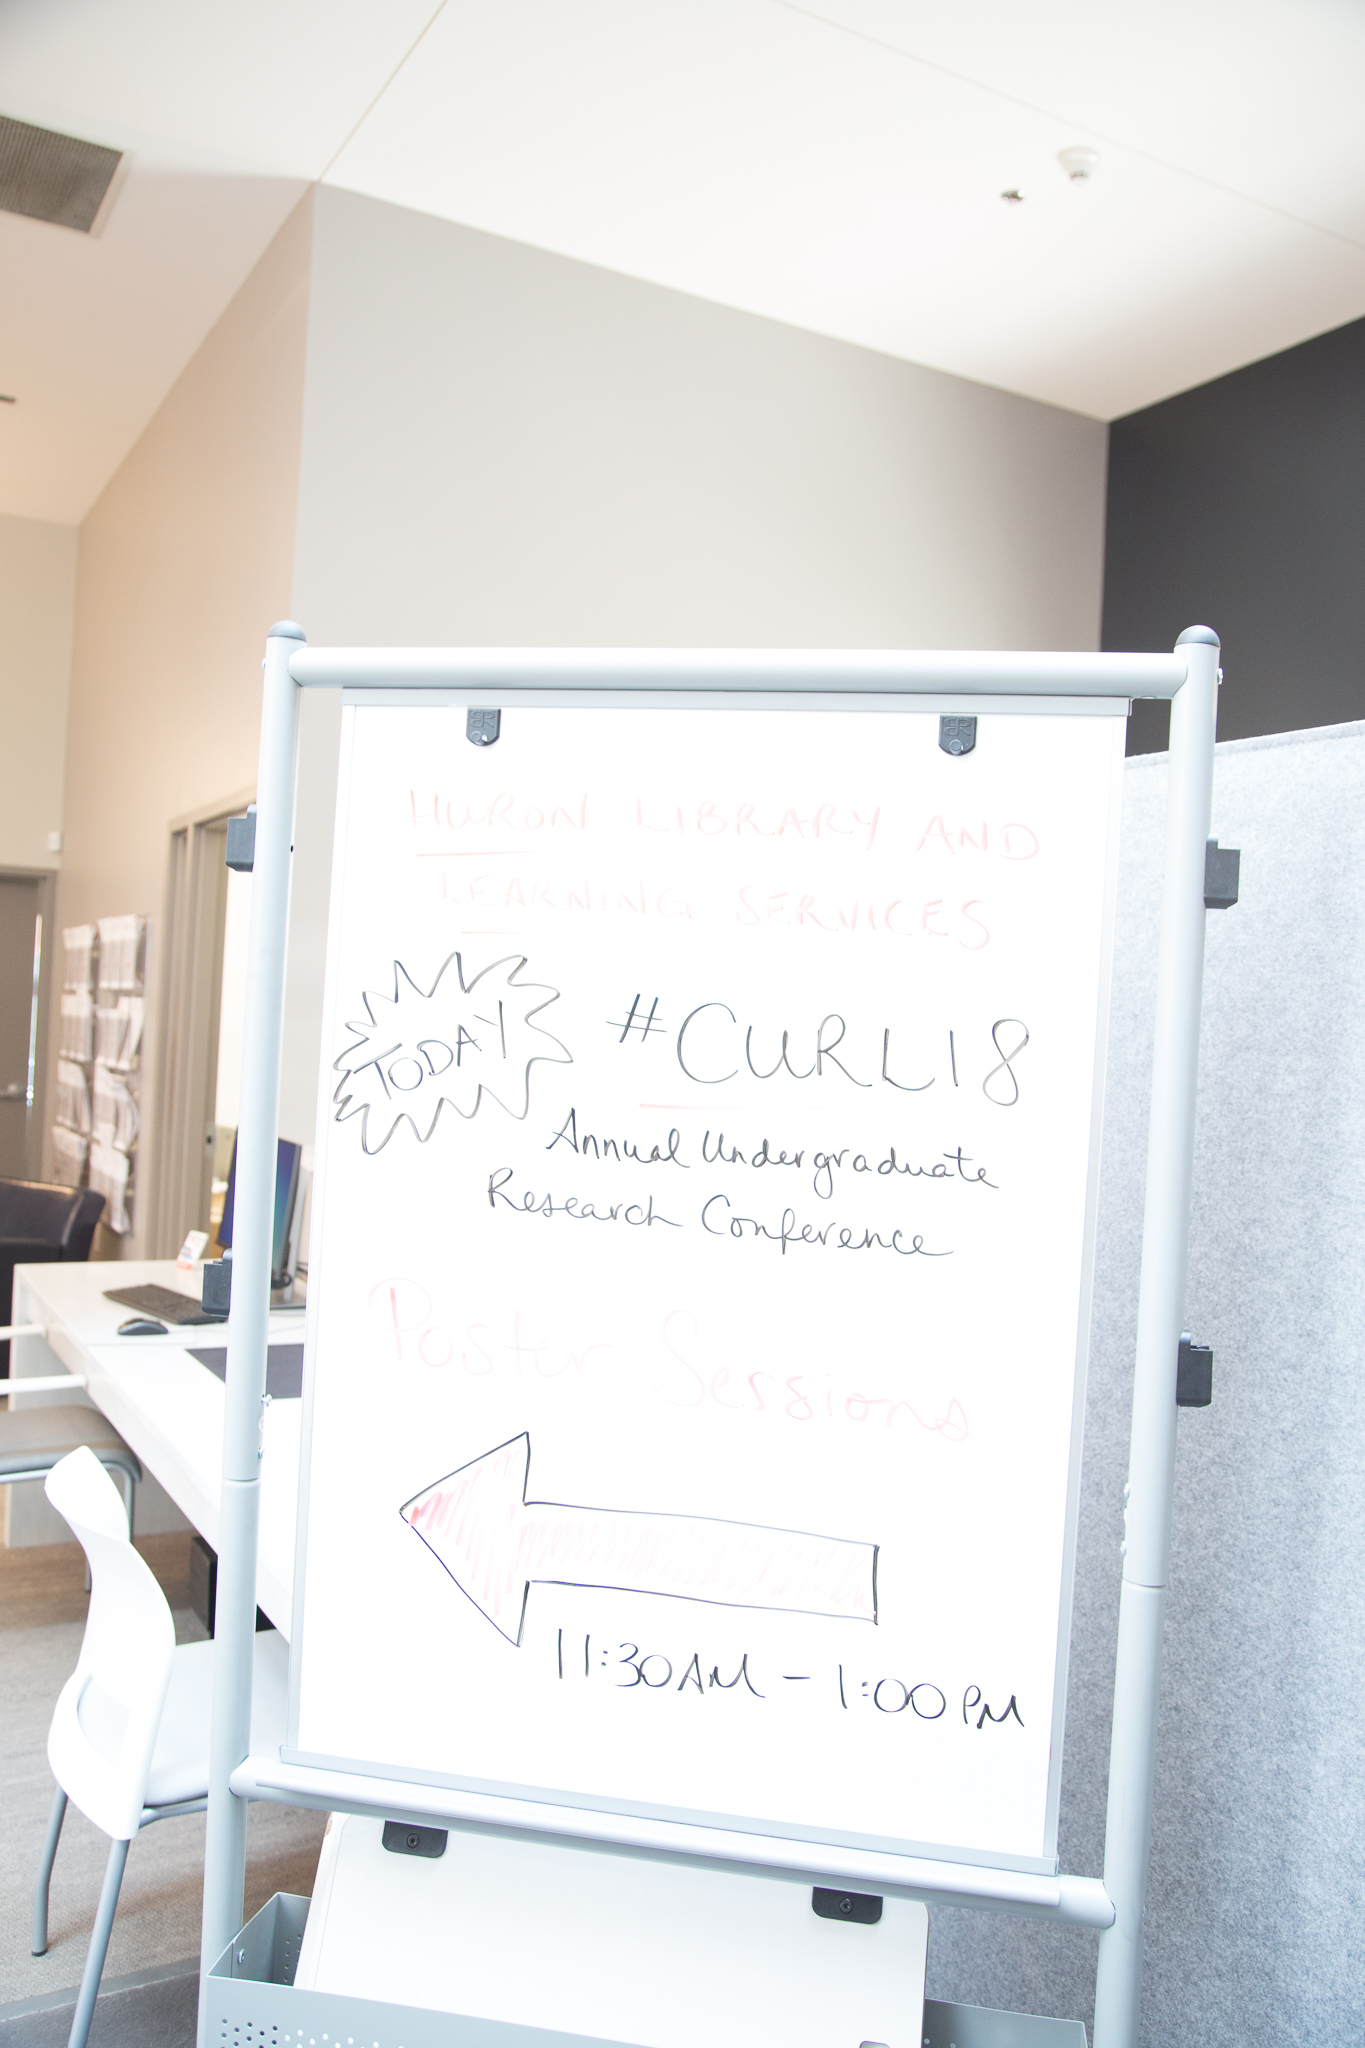 HURON LIBRARY AND
LEARNING SERVICES
TODAY
#CURL18
Annual Undergraduate
Research Conference
Poster Sessions
11:30AM - 1:00PM